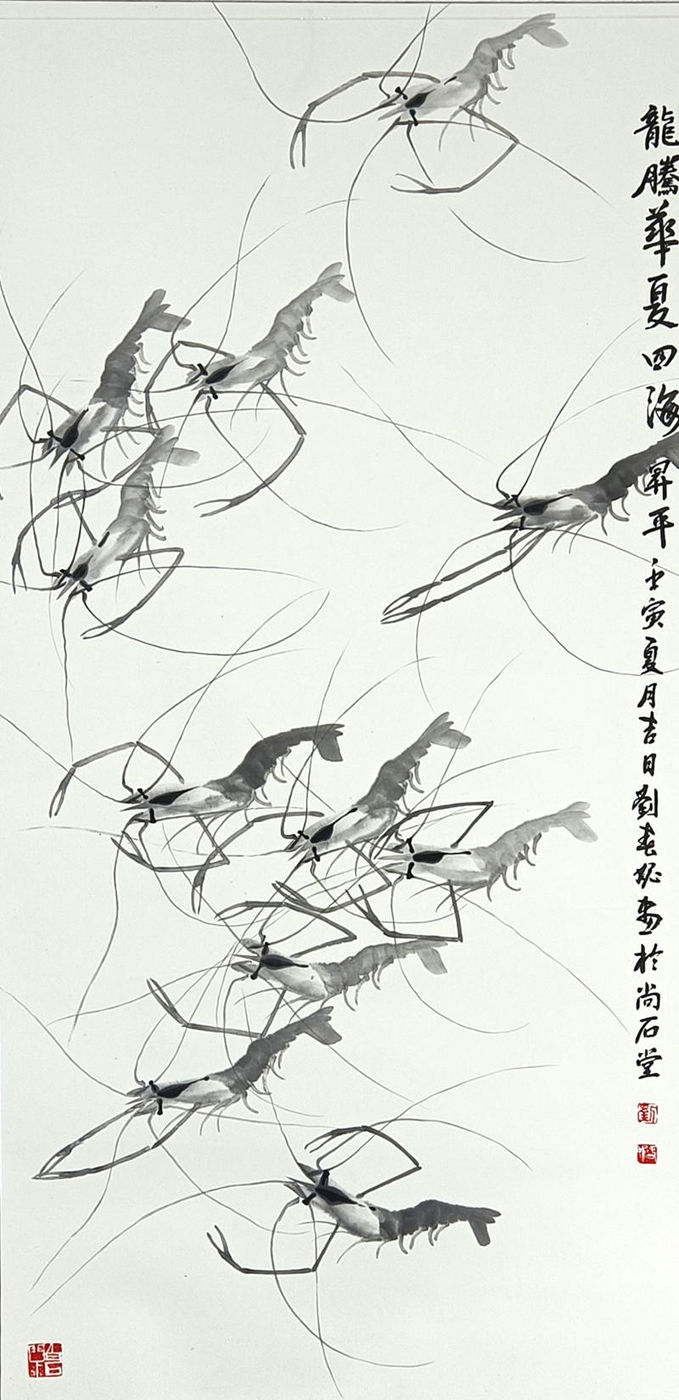 龍騰華夏四海昇平壬寅夏月吉日劉春 畫於尚石堂